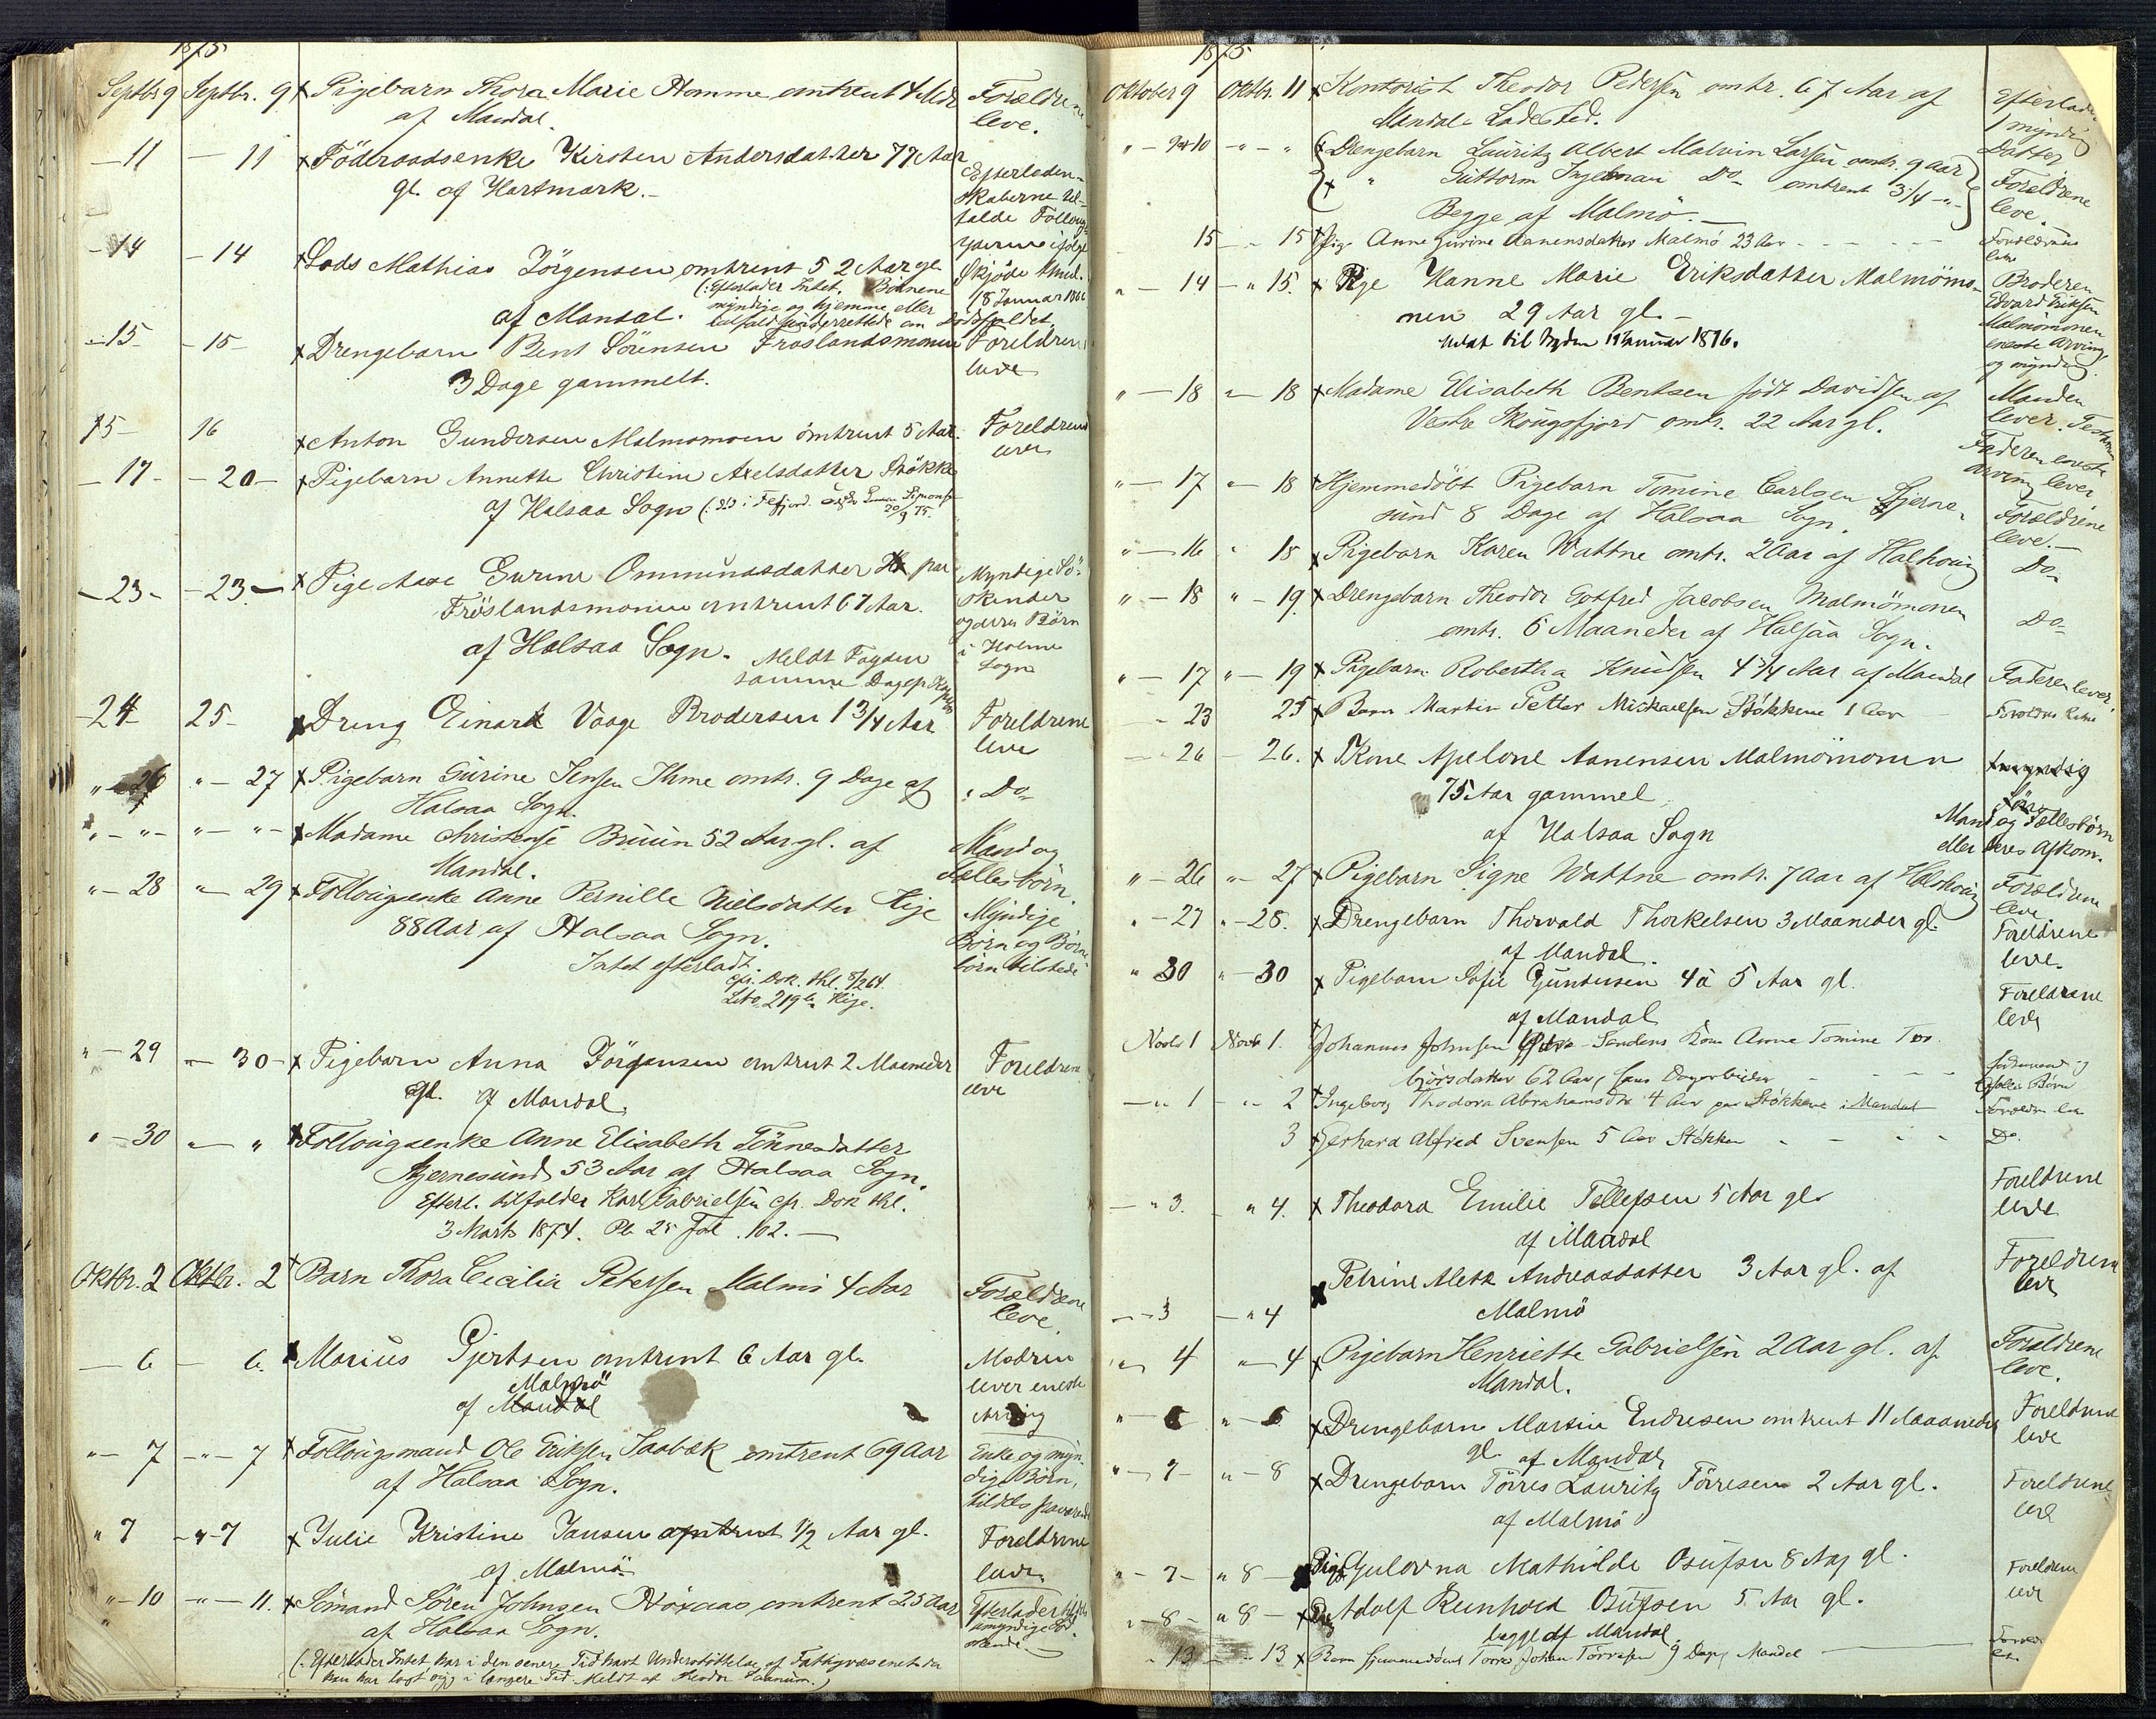 1875
Septbr 9 Septbr. 9 x Pigebarn Thora Marie Homme omtrent 4 Mdr Forældrene
af Mandal. leve.
11 11 x Föderaadsenke Kirsten Andersdatter 77 Aar
gl. af Hartmark. Efterladen-
skaberne til-
falde
14 14 x Lods Mathias Jörgensen omtrent 52 Aar gl. Skjöde
(: Efterlader Intet. Börnene
myndige og hjemme eller 18 Januar
af Mandal. underrettede om Dödsfaldet.
15 15 x Drengebarn Bent Sörensen Froslandsmonen Foreldrene
3 Dage gammelt. leve
15 16 x Anton Gundersen Malmomoen omtrent 5 Aar. Foreldrene
leve
17 20 x Pigebarn Annette Christine Axelsdatter Stökken
af Halsaa Sogn
23 23 x Pige Aase Gurine Ommundsdatter paa Myndige Sö-
Fröslandsmonen omtrent 67 Aar. skender
og deres Börn
af Halsaa Sogn. i Holme
Meldt Fogden Sogn
samme Dag
24 25 x Dreng Einar Vaage Brodersen 1 3/4 Aar Foreldrene
leve
" 26 " 27 x Pigebarn Gurine Jensen Ihme omtr. 9 Dage af Do
Halsaa Sogn.
" " " " x Madame Christense Bruun 52 Aar gl. af Mand og
Mandal. Fællesbörn.
" 28 " 29 x Follougsenke Anne Pernille Nielsdatter Kige Myndige
88 Aar af Halsaa Sogn. Börn og Börne-
Intet efterladt. börn tilstede
cfr. Dok. thl.
" 29 " 30 x Pigebarn Anna Jörgensen omtrent 2 Maaneder Foreldrene
gl. af Mandal. leve
" 30 " " x Follougsenke Anne Elisabeth Tönnesdatter
Skjernesund 53 Aar af Halsaa Sogn.
Efterl. tilfalder Karl Gabrielsen cfr. Dok thl.
3 Marts 1874. Pb 25 Fol. 102.
Oktbr. 2 Oktbr. 2 x Barn Thora Cecilie Petersen Malmö 4 Aar Forældrene
leve.
6 6. x Marius Gjertsen omtrent 6 Aar gl. Modren
Malmö lever eneste
af Mandal Arving
" 7 " 7 x Follougsmand Ole Eriksen Saabek omtrent 69 Aar Enke og myn-
af Halsaa Sogn. dige Börn,
" 7 " 7 x Julie Kristine Jansen omtrent 1/2 Aar gl. Foreldrene
af Malmö leve
" 10 " 11. x Sömand Sören Johnsen omtrent 25 Aar Efterlader
af Halsaa Sogn. umyndige
(: Efterlader Intet, har i den senere Tid havt Understöttelse af Fattigvæsenet da
han har lagt syg i længere Tid. Meldt af
1875
Oktober 9 Oktbr. 11 x Kontorist Theodor Pedersen omtr. 67 Aar af Efterlader
Mandals Ladested. 1 myndig
Datter
" 10 " " x Drengebarn Lauritz Albert Malvin Larsen omtr. 9 Aar
x " Guttorm Ingelman Do omtrent 3 1/4 " Forældrene
Begge af Malmö leve.
15 15 x Pige Anne Gurine Aanensdatter Malmö 23 Aar Forældrene
leve
" 14 " 15. x Pige Hanne Marie Eriksdatter Malmömo- Broderen
nen 29 Aar gl. Edvard Eriksen
Meldt til Byfden 11 Januar 1876. Malmömonen
eneste Arving
og myndig.
" 18 " 18 x Madame Elisabeth Bentsen födt Davidsen af Manden
Vestre Skougsfjord omtr. 22 Aar gl. lever.
Faderen eneste
Arving lever
" 17 " 18 x Hjemmedöbt Pigebarn Tomine Carlsen Skjerne-
sund 8 Dage af Halsaa Sogn. Forældrene
leve.
" 16 " 18 x Pigebarn Karen Wattne omtr. 2 Aar af Halshoug Do
" 18 " 19 x Drengebarn Theodor Gotfred Jacobsen Malmömonen Do
omtr. 6 Maaneder af Halsaa Sogn.
" 17 " 19 x Pigebarn Robertha Knudsen 4 3/4 Aar af Mandal Faderen lever.
23 25 x Barn Martin Petter Mickaelsen Stökkene 1 Aar Forældre leve
26 26. x Kone Apelone Aanensen Malmömonen
75 Aar gammel
af Halsaa Sogn Mand og Fællesbörn
eller deres Afkom.
" 26 " 27 x Pigebarn Signe Wattne omtr. 7 Aar af Halshoug Forældrene
leve
" 27 " 28. x Drengebarn Thorvald Thorkelsen 3 Maaneder gl. Foreldrene
af Mandal. leve.
" 30 " 30 x Pigebarn Sofie Gundersen 4 à 5 Aar gl. Foreldrene
af Mandal leve
Novbr 1 Novb 1. x Johannes Johnsen Sandens Kone Anne Tomine Tor-
björsdatter 62 Aar,
Fælles Börn
" 1 " 2 x Ingeborg Thodora Abrahamsdtr 4 Aar paa Stökkene i Mandal Forældre leve
3 x Gerhard Alfred Svensen 5 Aar Stökken Do.
" 3. " 4. x Theodora Emilie Tellefsen 5 Aar gl. Foreldrene
af Mandal leve
3 " 4 x Petrine Mete Andreasdatter 3 Aar gl. af Foreldrene
Malmö leve
" 4 " 4 x Pigebarn Henriette Gabrielsen 2 Aar gl. af Forældrene
Mandal. leve.
" 6 " 6 x Drengebarn Martin Endresen omtrent 11 Maaneder Foreldrene
gl. af Mandal leve
" 7 " 8 x Drengebarn Törres Lauritz Törresen 2 Aar gl. Foreldrene
af Malmö leve
" 7 " 8 x Pige Gulovna Mathilde Osufsen 8 Aar gl. Foreldrene
leve
" 8 " 8 x Adolf Reinhold Osufsen 5 Aar gl.
begge af Mandal.
" 13 " 13 x Barn hjemmedöbt Torres Johan Törresen 9 Dage Mandal